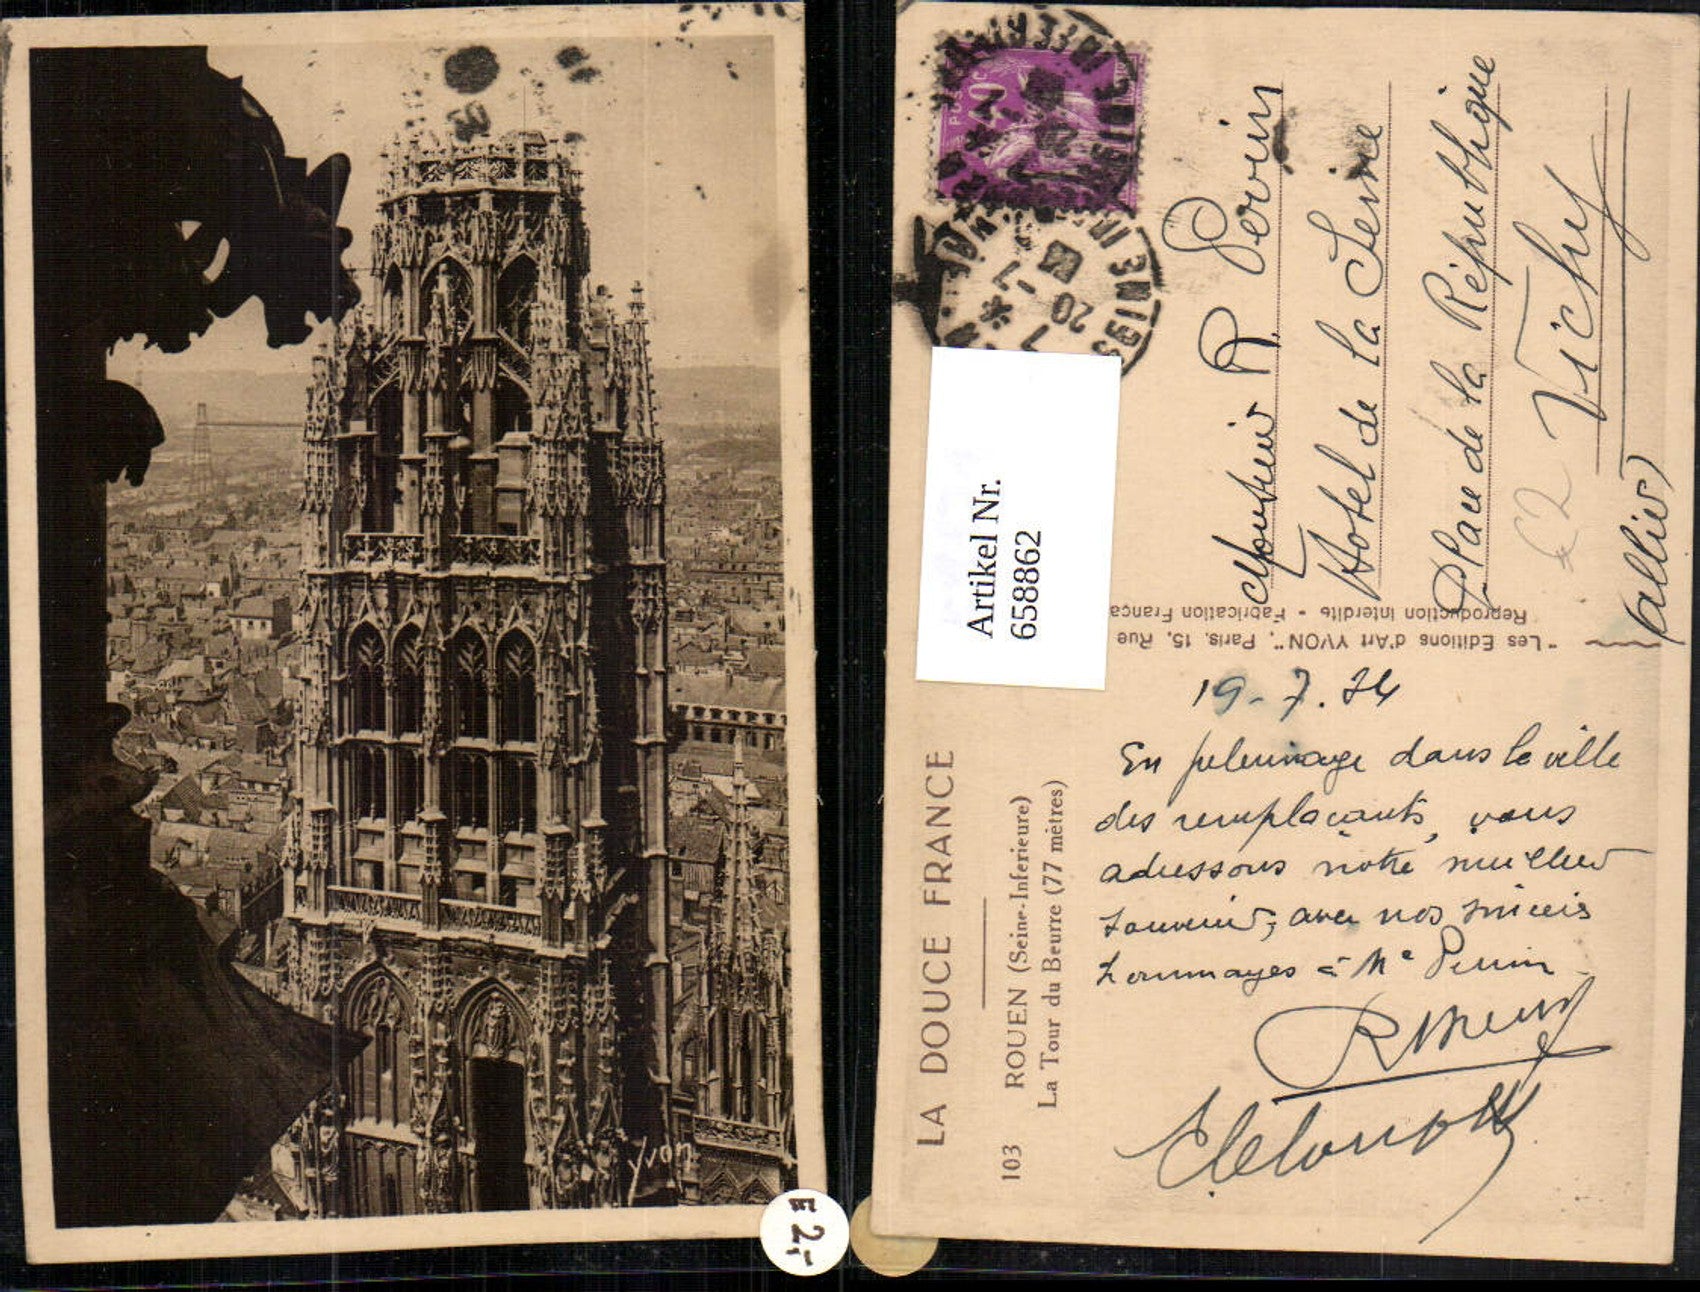 yvon
E 2,-
LA DOUCE FRANCE
103 ROUEN (Seine-Inferieure)
La Tour du Beurre (77 mètres)
Artikel Nr.
658862
"Les Editions d'Art YVON", Paris, 15, Rue
Reproduction interdite - Fabrication França
POSTES
40c
SEINE
20 - 7
Monsieur R. Perrin
Hotel de la Seine
Place de la République
Vichy
(Allier)
€2
19-7.34
En pelerinage dans la ville
des remplacants, vous
adressons notre meilleur
souvenir, avec nos sincères
hommages à Me Perrin